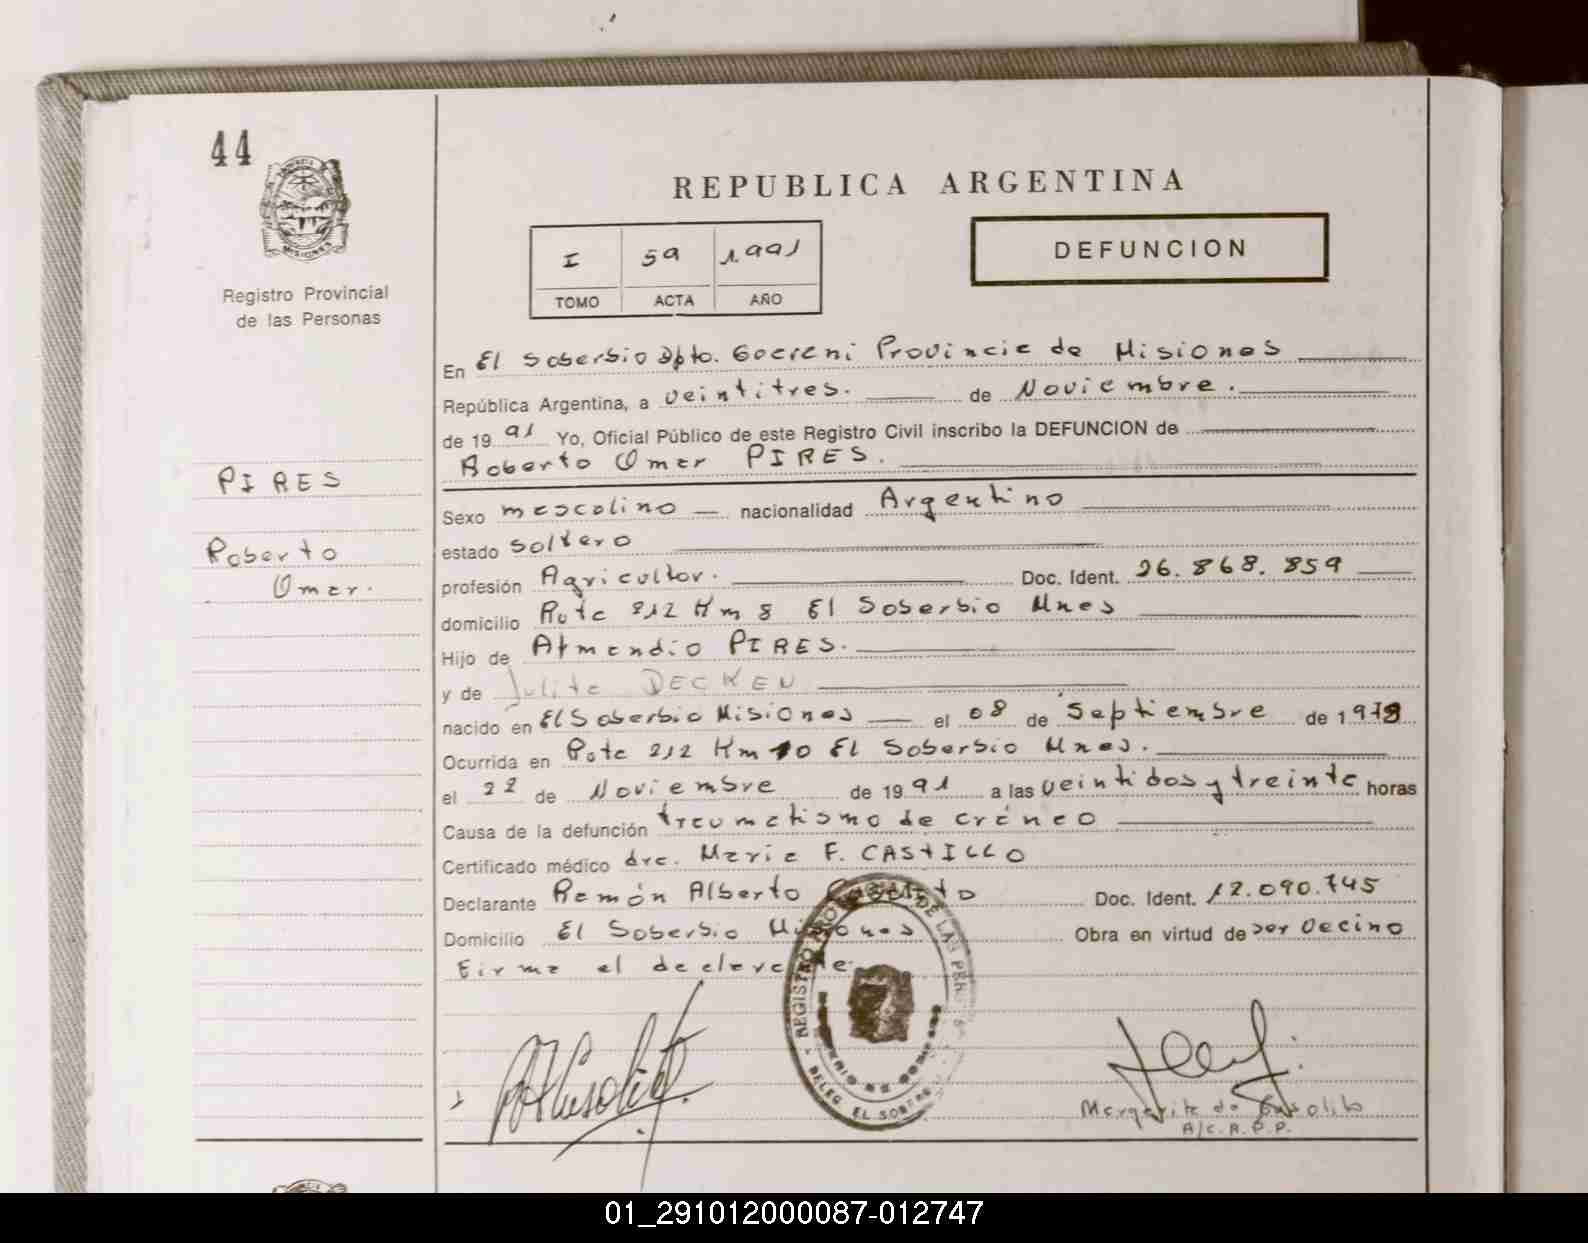 44
MISIONES
Registro Provincial
de las Personas
PIRES
Roberto
Omar.
REPUBLICA ARGENTINA
I 59 1.991
TOMO ACTA AÑO
DEFUNCION
En El Soberbio Dpto. Guarani Provincia de Misiones
República Argentina, a veintitres. de Noviembre.
de 19 91 Yo, Oficial Público de este Registro Civil inscribo la DEFUNCION de
Roberto Omar PIRES.
Sexo mascolino nacionalidad Argentino
estado soltero
profesión Agricultor. Doc. Ident. 26.868.859
domicilio Ruta 212 Km 8 El Soberbio Mnes
Hijo de Armandio PIRES.
y de Julita DECKEN
nacido en El Soberbio Misiones el 08 de Septiembre de 1978
Ocurrida en Ruta 212 Km 10 El Soberbio Mnes.
el 22 de Noviembre de 19 91 a las veintidos y treinta horas
Causa de la defunción traumatismo de cráneo
Certificado médico dra. Maria F. CASTILLO
Declarante Ramón Alberto Doc. Ident. 12.090.745
Domicilio El Soberbio Misiones Obra en virtud de ser Vecino
Firma el declarante
REGISTRO PROVINCIAL DE LAS PERS
DELEG. EL SOBERB
Margarita de Cusolito
A/C.R.P.P.
01_291012000087-012747